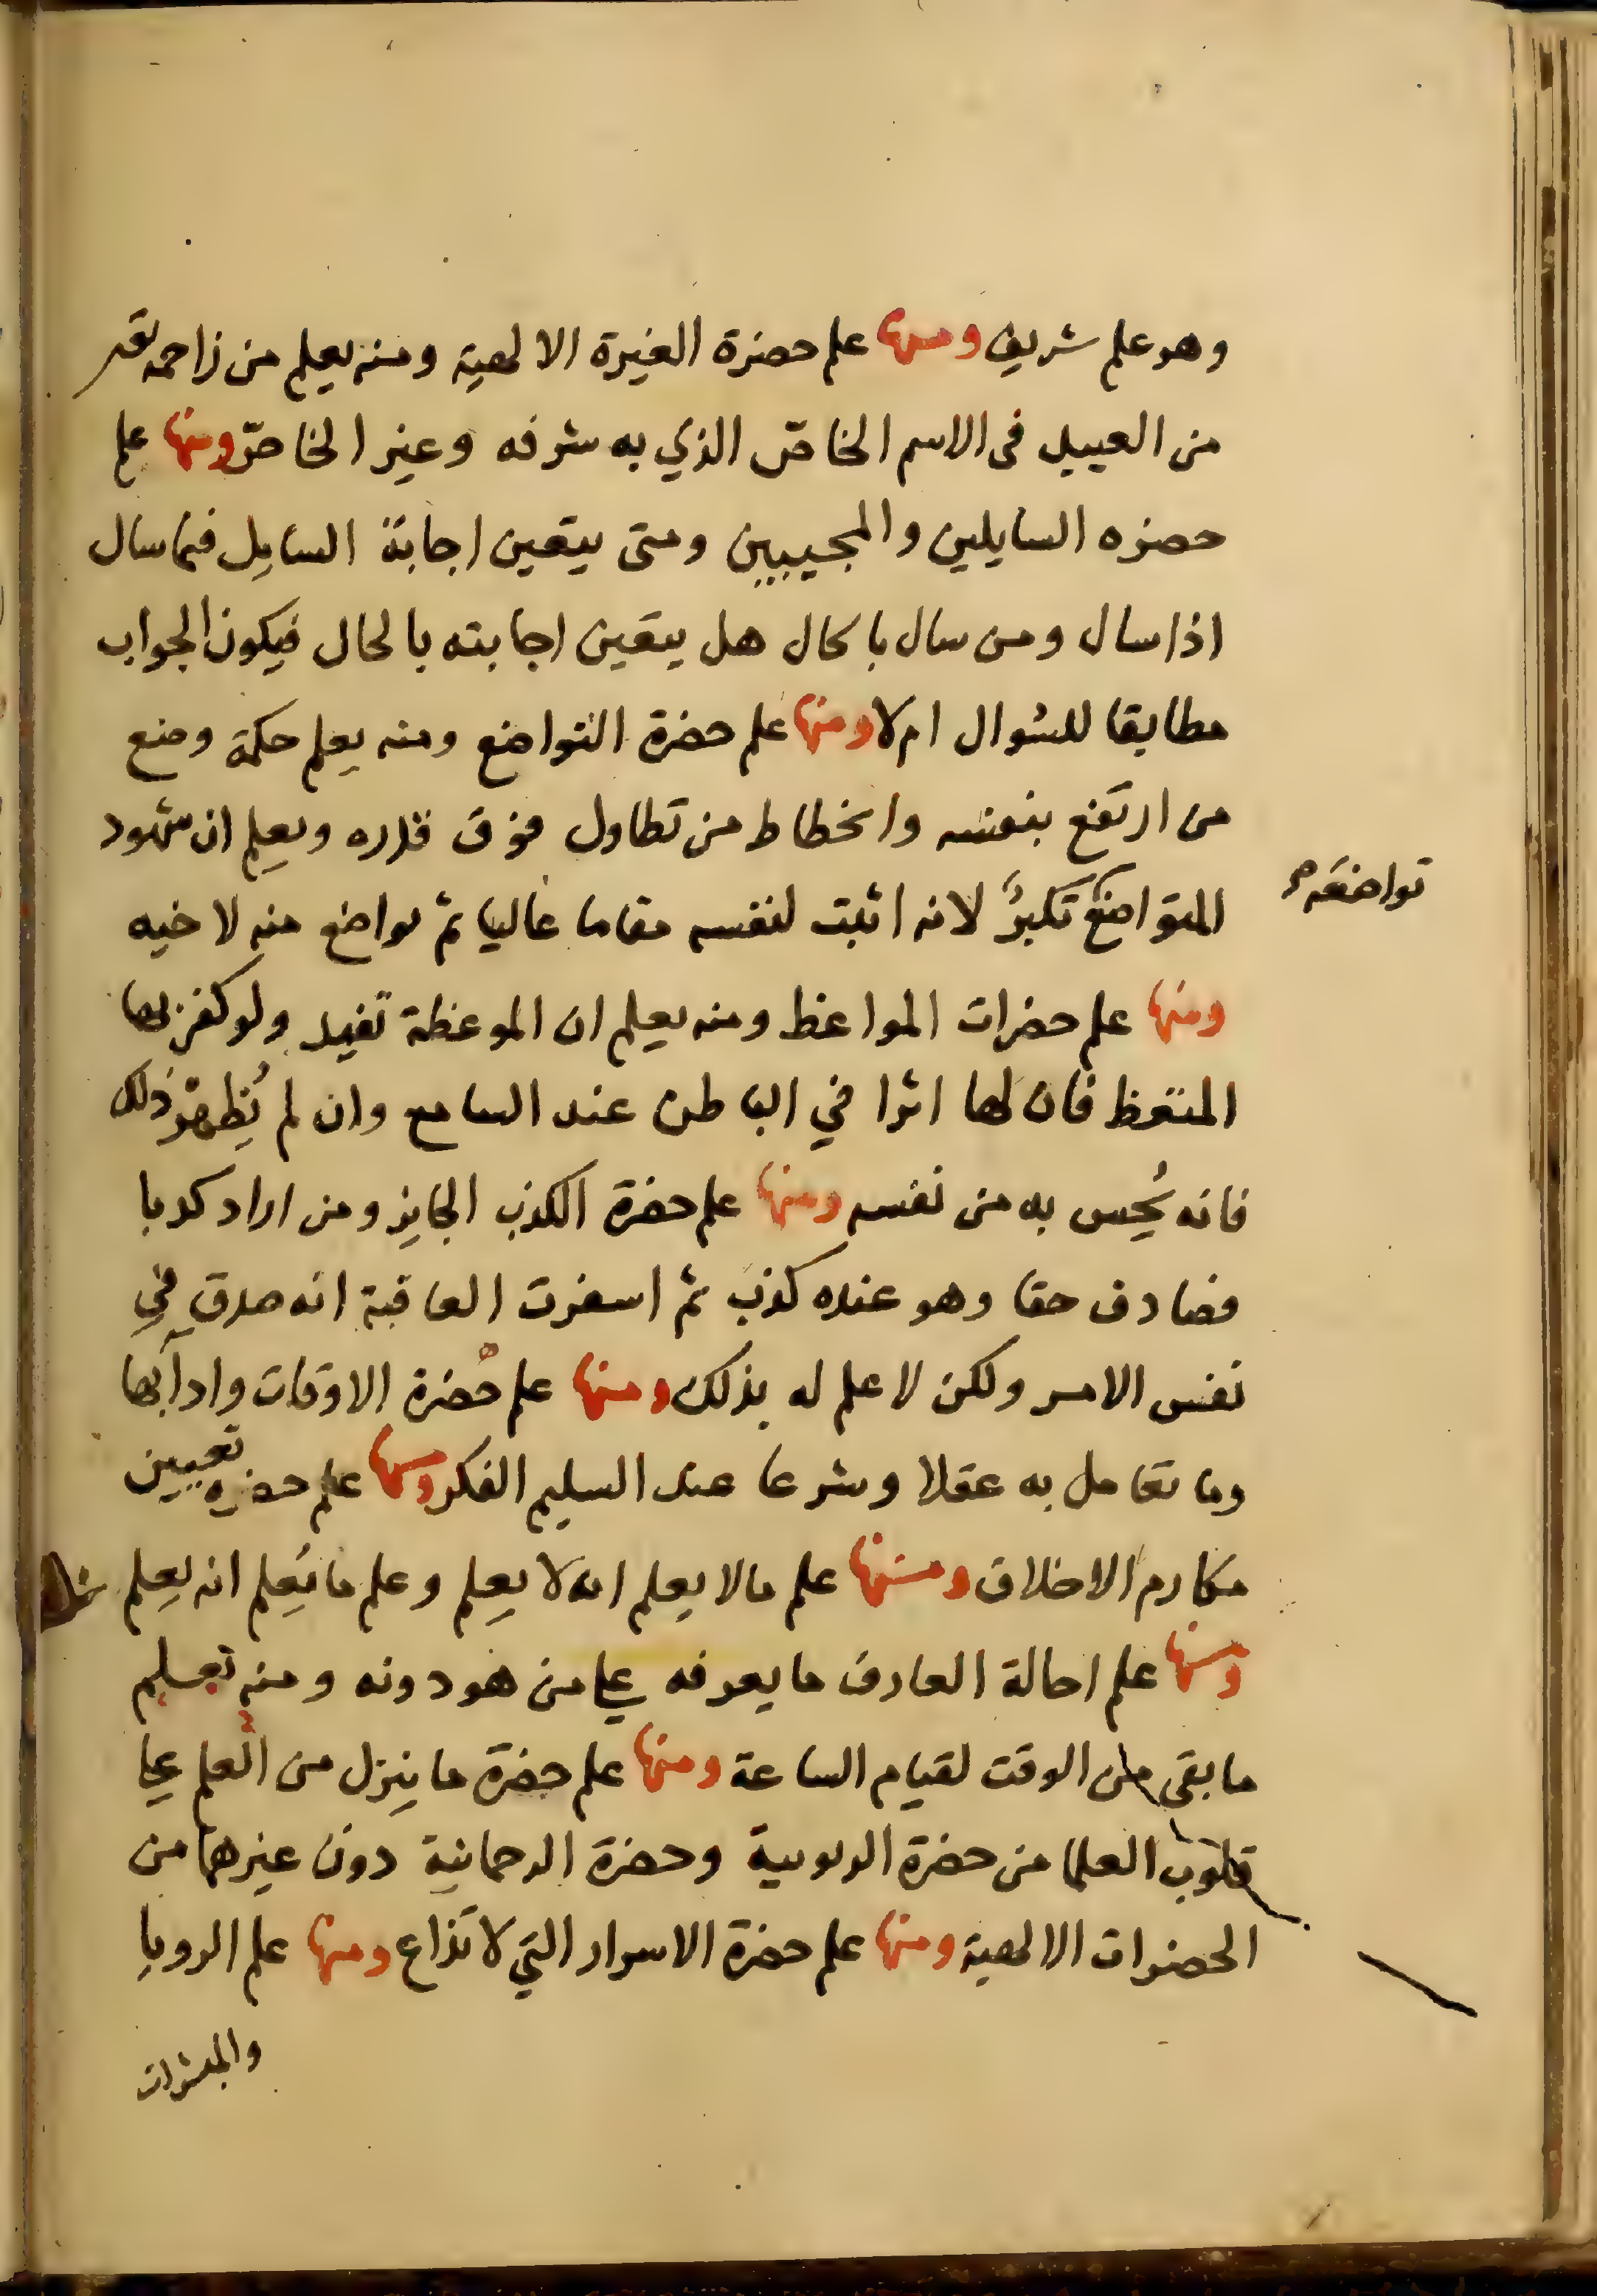 وهو علم شريف ومنها علم حضرة الغيرة الالهية ومنه يعلم من زاحمه
من العبيد في الاسم الخاصّ الذي به شرفه وغير الخاصّ ومنها علم
حضره السايلين والمجيبين ومتى يتعين اجابة السايل فيما سال
اذا سال ومن سال بالحال هل يتعين اجابته بالحال فيكون الجواب
مطابقا للسُوال ام لا ومنها علم حضرة التواضع ومنه يعلم حكمة وضع
من ارتفع بنفسه وانحطاط من تطاول فوق قدره ويعلم ان شهود
المتواضع تكبرٌ لانه اثبت لنفسه مقاما عاليا ثم تواضع منه لاخيه
تواضعَه
ومنها علم حضرات المواعظ ومنه يعلم ان الموعظة تفيد ولو كفر بها
المتعظ فان لها اثرا في الباطن عند السامع وان لم يُظهر ذلك
فانه يُحِس به من نفسه ومنها علم حضرة الكذب الجايز ومن اراد كذبا
فصادف حقا وهو عنده كذب ثم اسفرت العاقبة انه صدق في
نفس الامر ولكن لا علم له بذلك ومنها علم حضرة الاوقات وادآبها
وما تعامل به عقلا وشرعا عند السليم الفكر ومنها علم حضره تعيين
مكارم الاخلاق ومنها علم مالا يعلم انه لا يعلم وعلم ما يُعلم انه يعلم
ومنها علم احالة العارف ما يعرفه على من هو دونه ومنه تعلم
ما بقي من الوقت لقيام الساعة ومنها علم حضرة ما ينزل من العلم على
قلوب العلما من حضرة الربوبية وحضرة الرحمانية دون غيرهما من
الحضرات الالهية ومنها علم حضرة الاسرار التي لا تذاع ومنها علم الرويا
والمبشرات